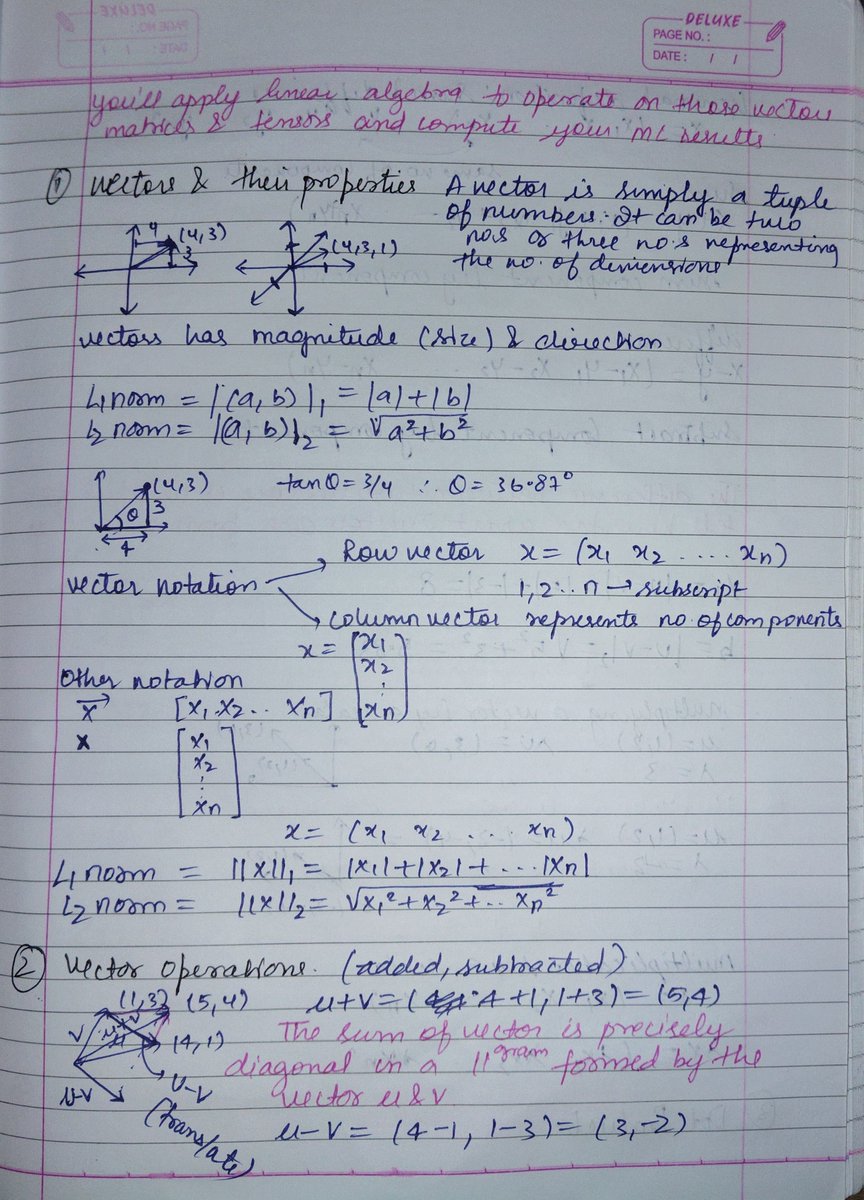 DELUXE
PAGE NO. :
DATE : / /
you'll apply linear algebra to operate on those vectors
matrices & tensors and compute your ML results.
① Vectors & their properties A vector is simply a tuple
of numbers. It can be two
no.s or three no.s representing
the no. of dimensions
4 (4,3) 3 (4,3,1)
vectors has magnitude (size) & direction
L1 norm = |(a,b)|₁ = |a|+|b|
L2 norm = |(a,b)|₂ = √a²+b²
(4,3) 3 θ 4 tanθ = 3/4 ∴ θ = 36.87°
Row vector x = (x₁ x₂ .... xₙ)
vector notation 1,2..n → subscript
column vector represents no. of components
x = [x₁
x₂
⋮
xₙ]
Other notation
x→ [x₁ x₂ .. xₙ]
x [x₁
x₂
⋮
xₙ]
x = (x₁ x₂ .... xₙ)
L1 norm = ||x||₁ = |x₁|+|x₂|+...|xₙ|
L2 norm = ||x||₂ = √x₁²+x₂²+..xₙ²
② Vector operations. (added, subtracted)
(1,3) (5,4) u+v = (4+1, 1+3) = (5,4)
v u+v u (4,1) The sum of vector is precisely
diagonal in a ||gram formed by the
u-v u-v vector u & v
(translate) u-v = (4-1, 1-3) = (3,-2)